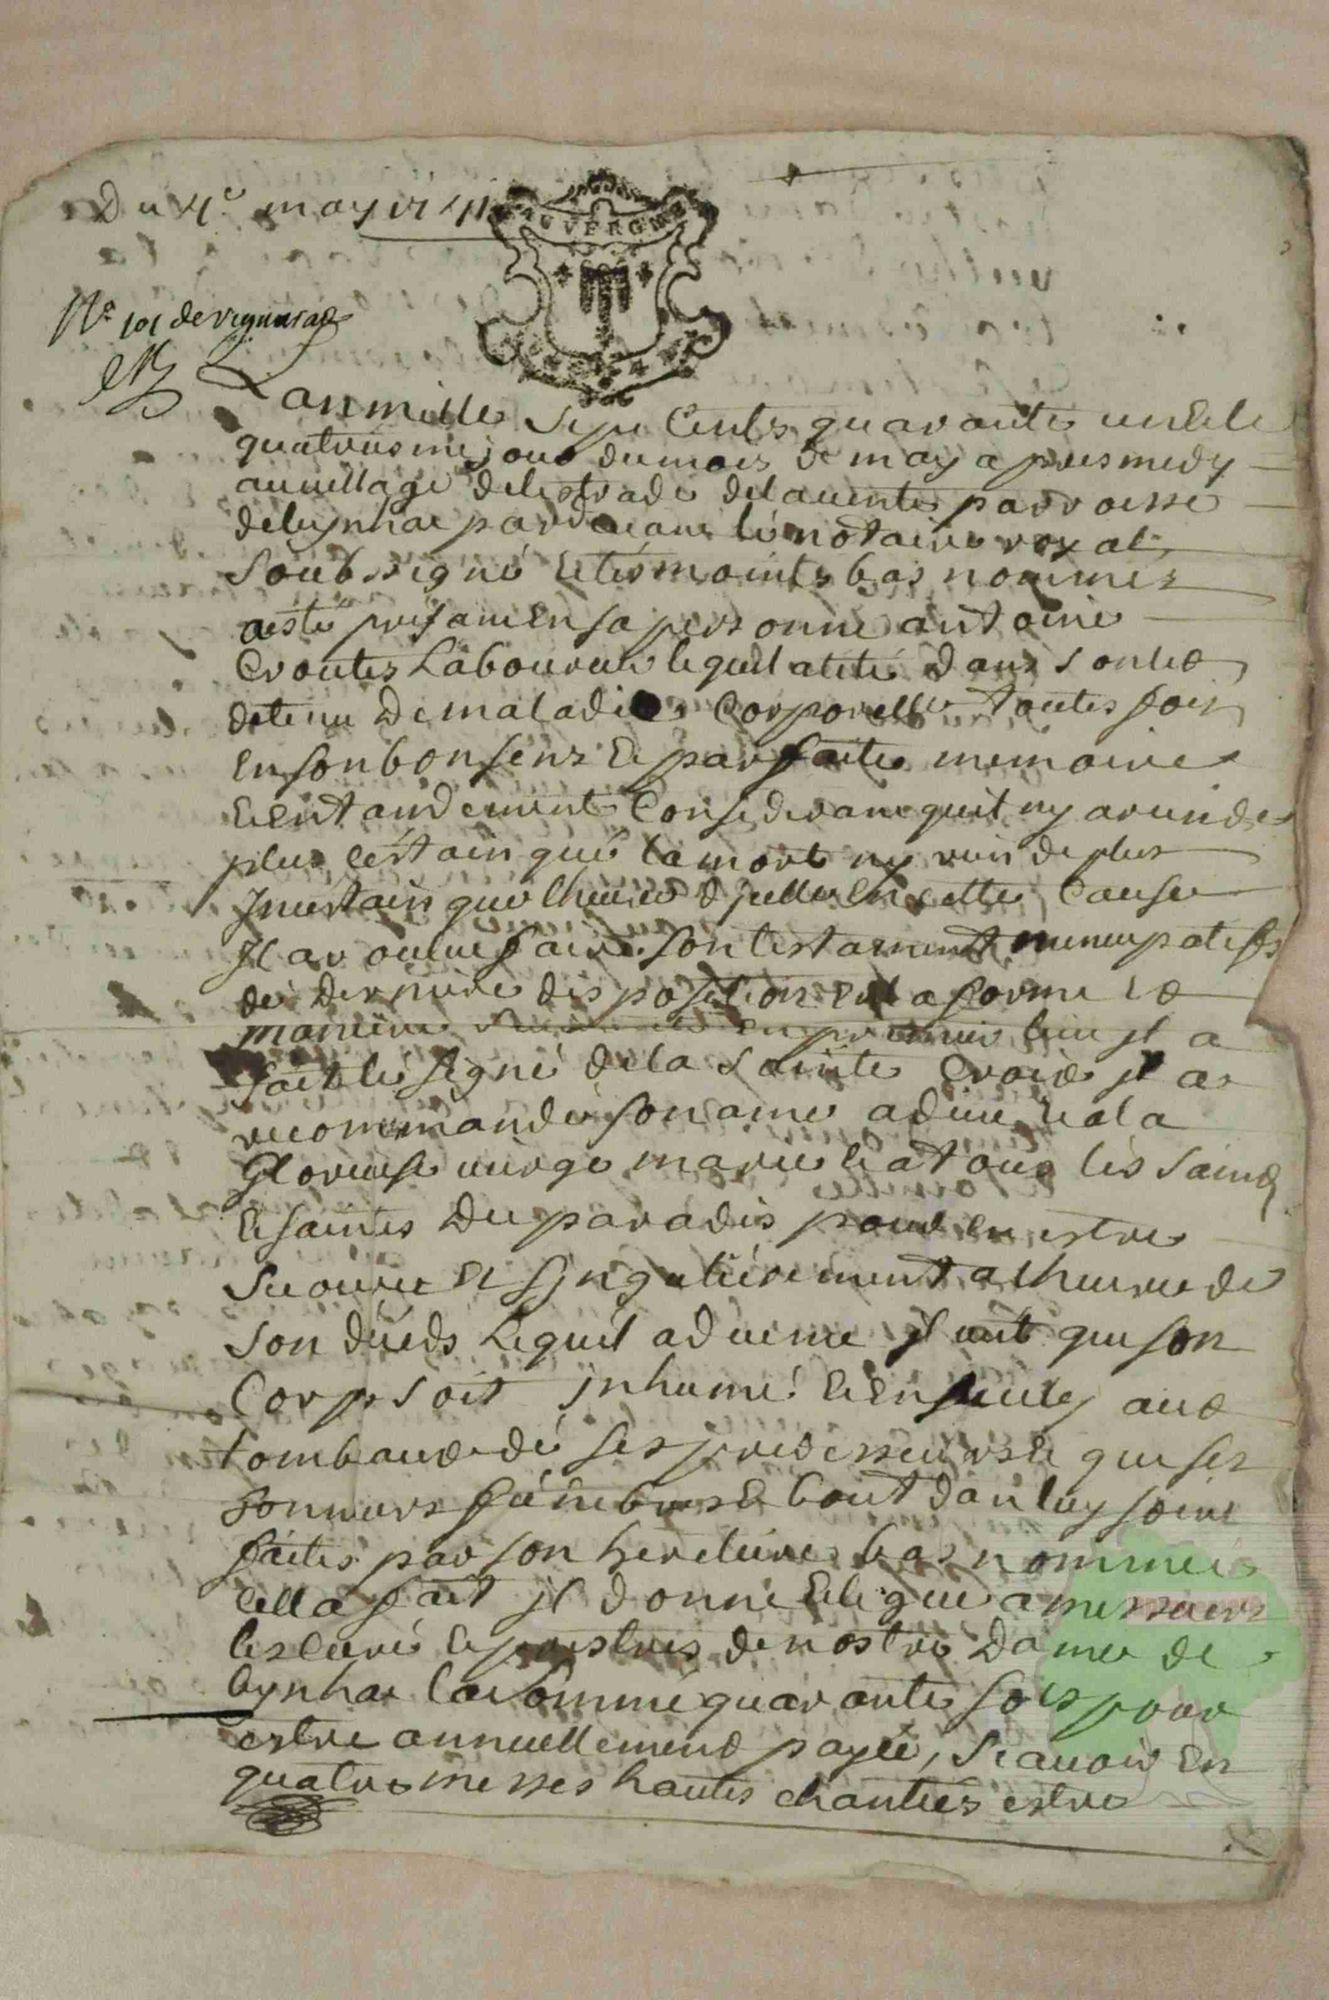 Du 4e may 1741
AUVERGNE
No 101 de vignerage
Lan mille Sept Cents quarante un Et le
quatriesme jour du mois de may apres medy
au village delestrade delavente parroisse
deleynhac pardevant le notaire royal
Soubsigné et tesmoints bas nommés
aesté presant En sa personne antoine
Croutes Laboureur lequel a esté dans son lict
detenu De maladie Corporelle toutes fois
En son bon sens Et parfaite memoire
Et entandement Considerant quil ny a rien de
plus certain que la mort ny rien de plus
Jncertain que lheure d jcelle En cette Cause
Jl a voulu faire son testament nuncupatif
de derniere disposition En la forme Et
maniere Suivante En premier lieu jl a
fait le signe de la Sainte Croix jl a
recommandé son ame a dieu Et a la
Glorieuse vierge marie Et a tous les saints
Et saintes Du paradis pour En estre
Secouru Et singulierement a lheure de
son déceds Lequel advenu jl veut que son
Corp soit jnhumé Et Ensevely aux
tombeaux de ses predesseurs Et que ses
honneurs funebres Et bout dan luy soint
faites par son heretiere bas nommée
Cella fait jl donne Et legue a messieurs
les curé Et prestres de nostre Dame de
leynhac la somme quarante sols pour
estre annuellement payée, Scavoir En
quatre messes hautes chantées estre